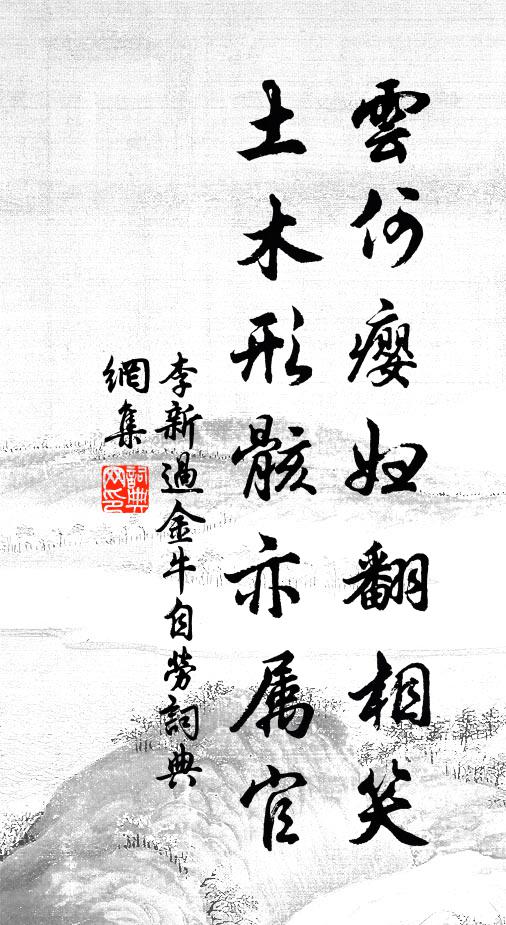 雲何癭妇翻相笑
土木形骸亦属官
李新過金牛自勞詞典
網集
詞典
网印